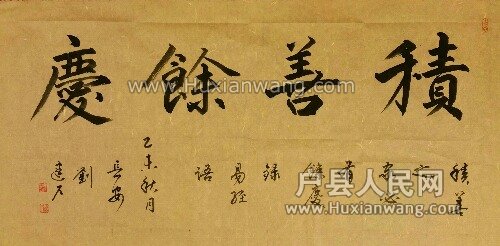 積善餘慶
積善
之
家必
有
餘慶
錄
易經
語
乙未秋月
長安
劉
www.Huxianwang.com
www.Huxianwang.com
户县人民网
www.Huxianwang.com